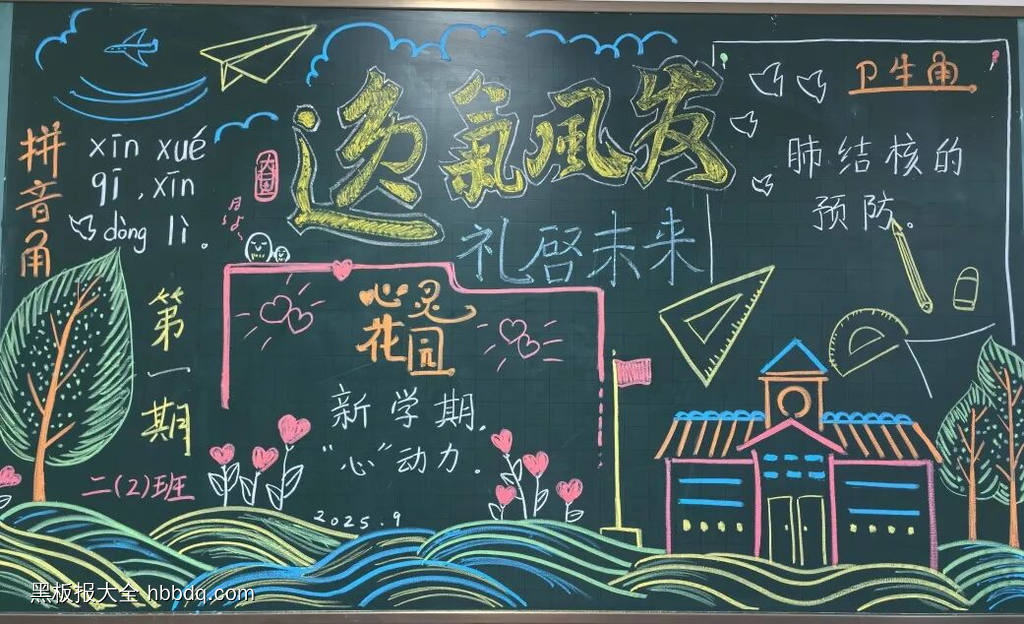 氣風发
礼启未来
拼音角
xīn xué
qī , xīn
dòng lì .
第一期
二(2)班
心灵
花园
新学期,
“心”动力。
2025.9
卫生角
肺结核的
预防。
黑板报大全 hbbdq.com